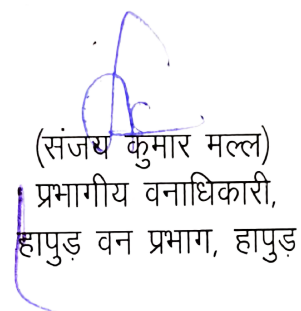 (संजय कुमार मल्ल)
प्रभागीय वनाधिकारी,
हापुड़ वन प्रभाग, हापुड़